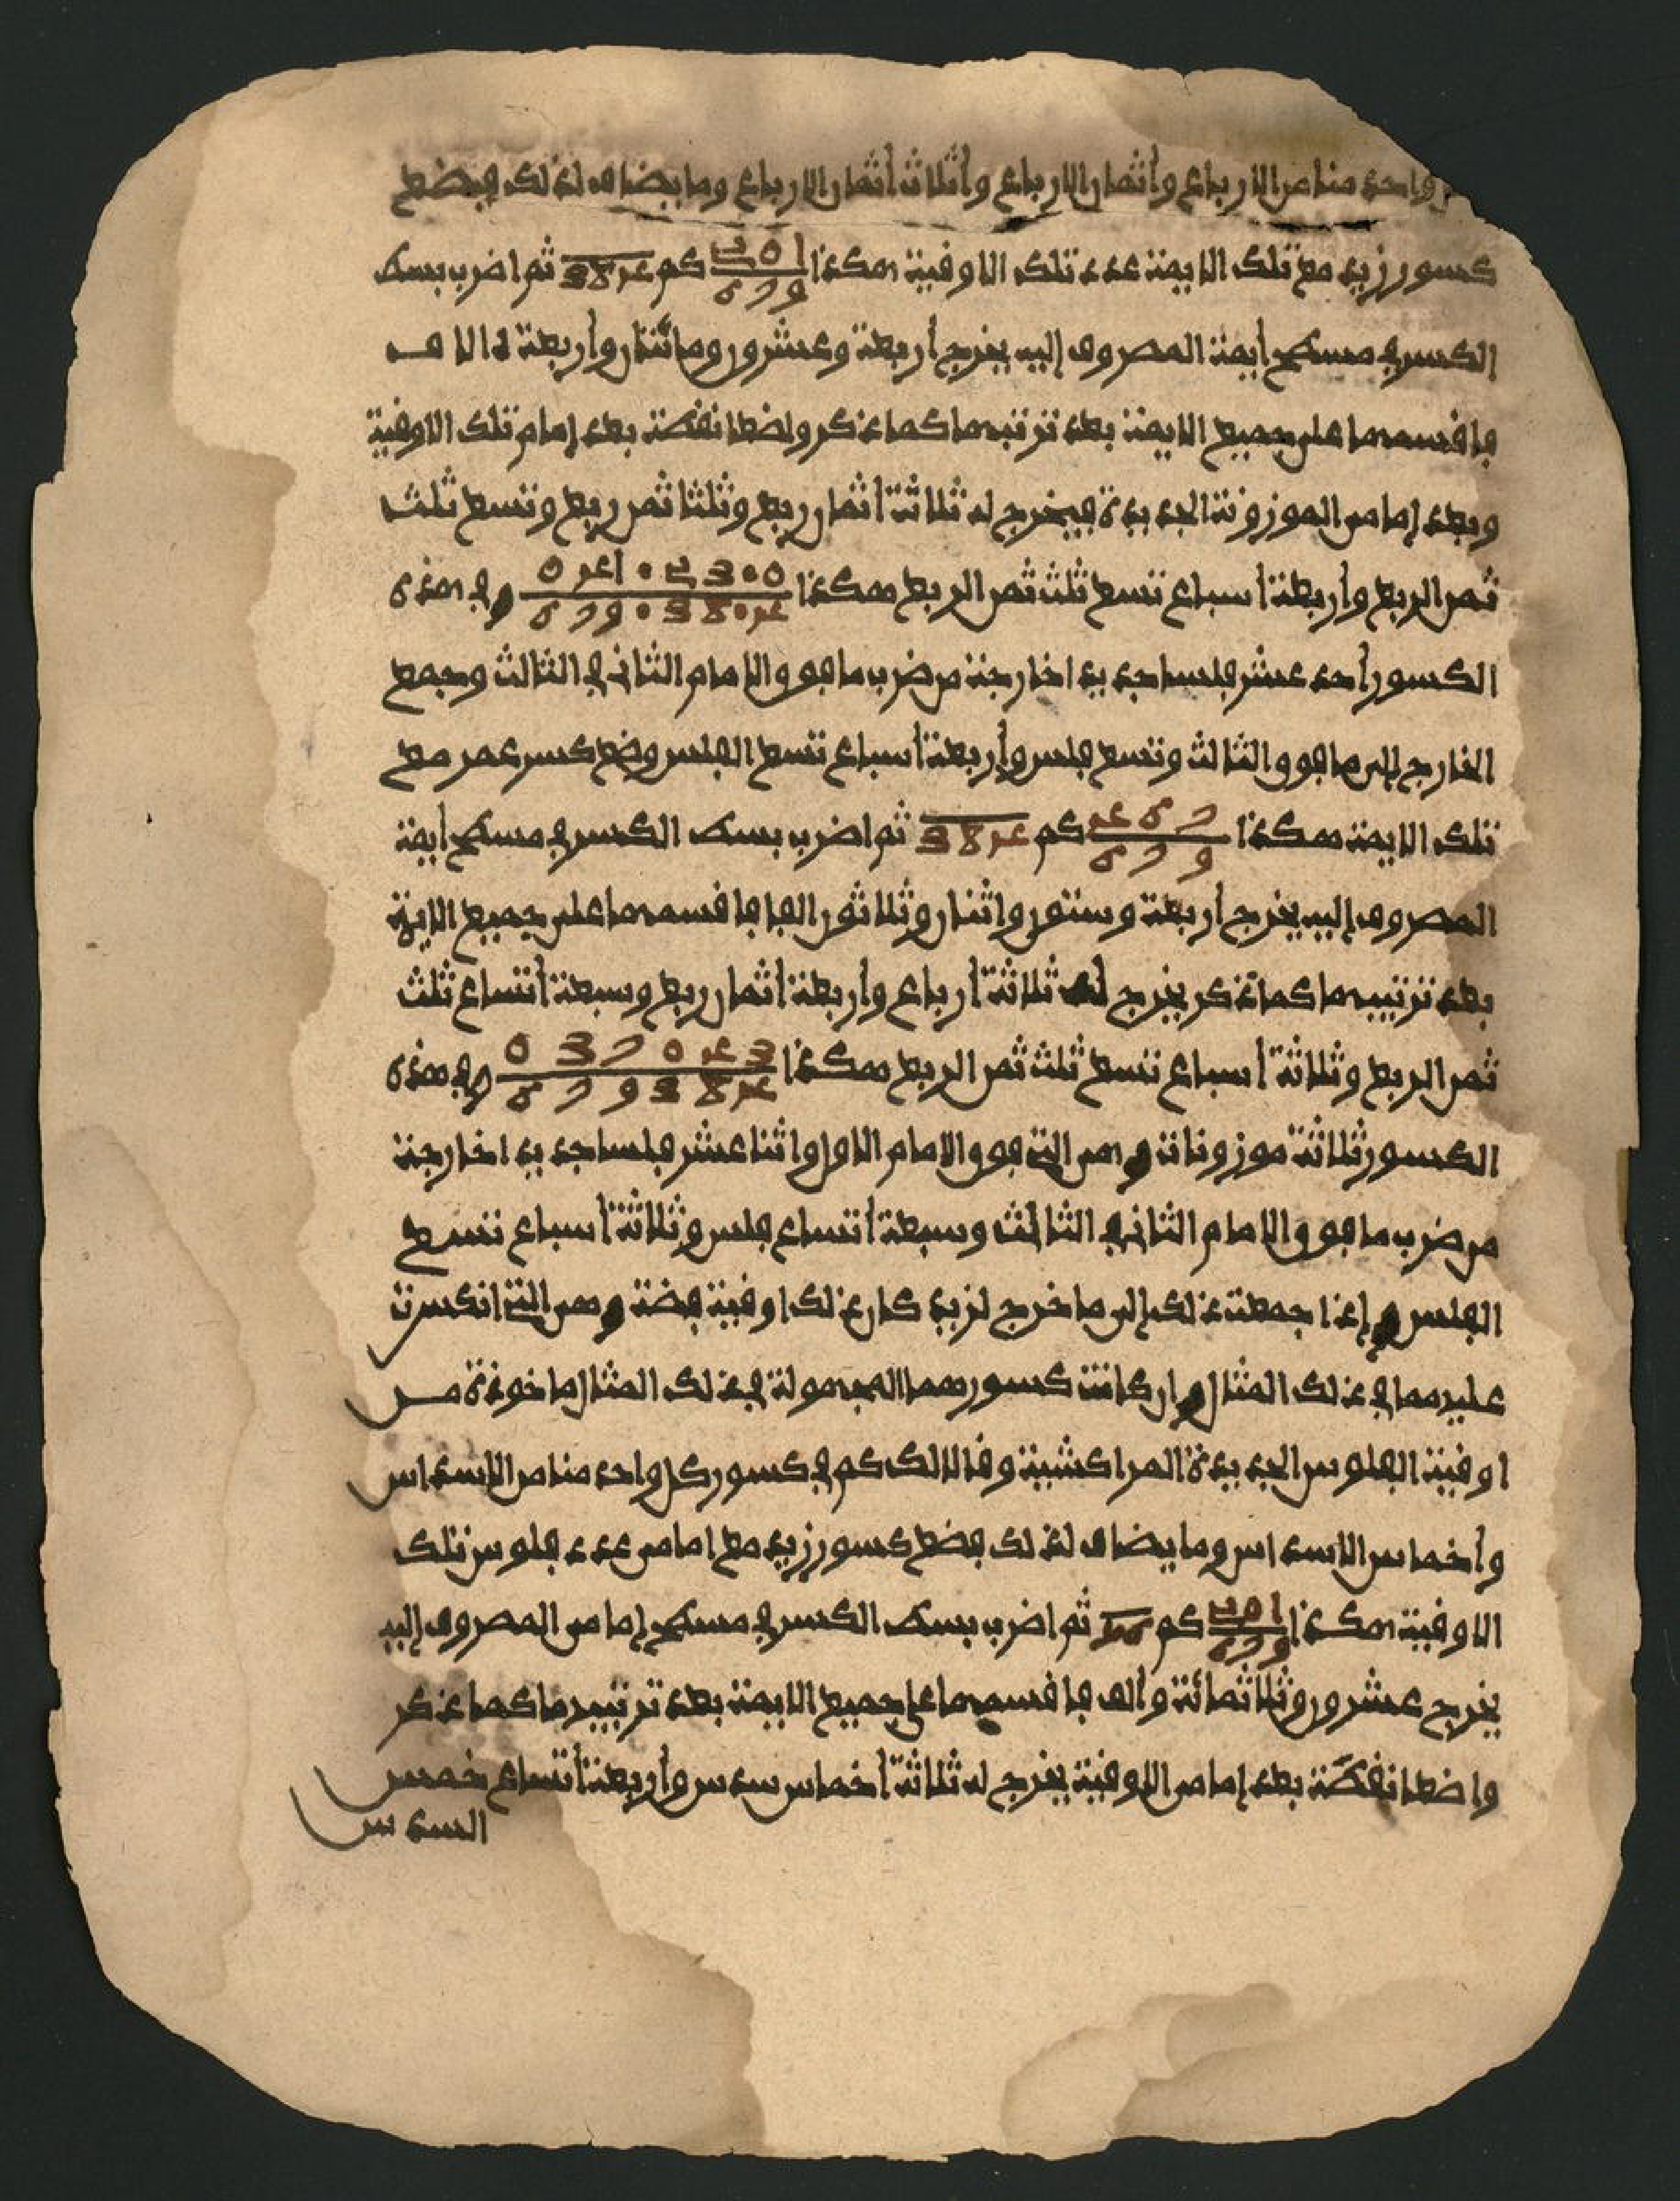 واحد منا من الارباع وأثمان الارباع وأثلاث أثمان الارباع وما يضاف لذلك فيضع
كسور زيد مع تلك الايمة عدد تلك الاوفية هكذا كم ثم اضرب بسط
الكسر في مسطح أيمة المصروف إليه يخرج أربعة وعشرون ومائتان وأربعة ءالاف
فاقسمها على جميع الايمة بعد ترتيبها كما ذكر واضعا نقطة بعد إمام تلك الاوقية
وبعد إمامي الموزونة الجديدة فيخرج له ثلاثة أثمان ربع وثلثا ثمن ربع وتسع ثلث
ثمن الربع وأربعة أسباع تسع ثلث ثمن الربع هكذا وفي هذه
الكسور أحد عشر فلسا جديدا خارجة من ضرب ما فوق الامام الثاني في الثالث وجمع
الخارج إلى ما فوق الثالث وتسع فلس وأربعة أسباع تسع الفلس وضع كسر عمر مع
تلك الايمة هكذا كم ثم اضرب بسط الكسر في مسطح أيمة
المصروف إليه يخرج أربعة وستون واثنان وثلاثون الفا فاقسمها على جميع الايمة
بعد ترتيبها كما ذكر يخرج له ثلاثة أرباع وأربعة أثمان ربع وسبعة أتساع ثلث
ثمن الربع وثلاثة أسباع تسع ثلث ثمن الربع هكذا وفي هذه
الكسور ثلاثة موزونات وهي التي فوق الامام الاول واثنا عشر فلسا جديدا خارجة
من ضرب ما فوق الامام الثاني في الثالث وسبعة أتساع فلس وثلاثة أسباع تسع
الفلس وإذا جمعت ذلك إلى ما خرج لزيد كان ذلك اوقية فضة وهي التي انكسرت
عليهما في ذلك المثال وان كانت كسورهما المجهولة في ذلك المثال ماخوذة مــن
اوقية الفلوس الجديدة المراكشية وقالا لك كم في كسور كل واحد منا من الاسداس
وأخماس الاسداس وما يضاف لذلك فضع كسور زيد مع امامي عدد فلوس تلك
الاوقية هكذا كم ثم اضرب بسط الكسر في مسطح إمامي المصروف إليه
يخرج عشرون وثلاثمائة وألف فاقسمها على جميع الايمة بعد ترتيبها كما ذكر
واضعا نقطة بعد إمامي الاوقية يخرج له ثلاثة أخماس سدس وأربعة أتساع خمس
السدس